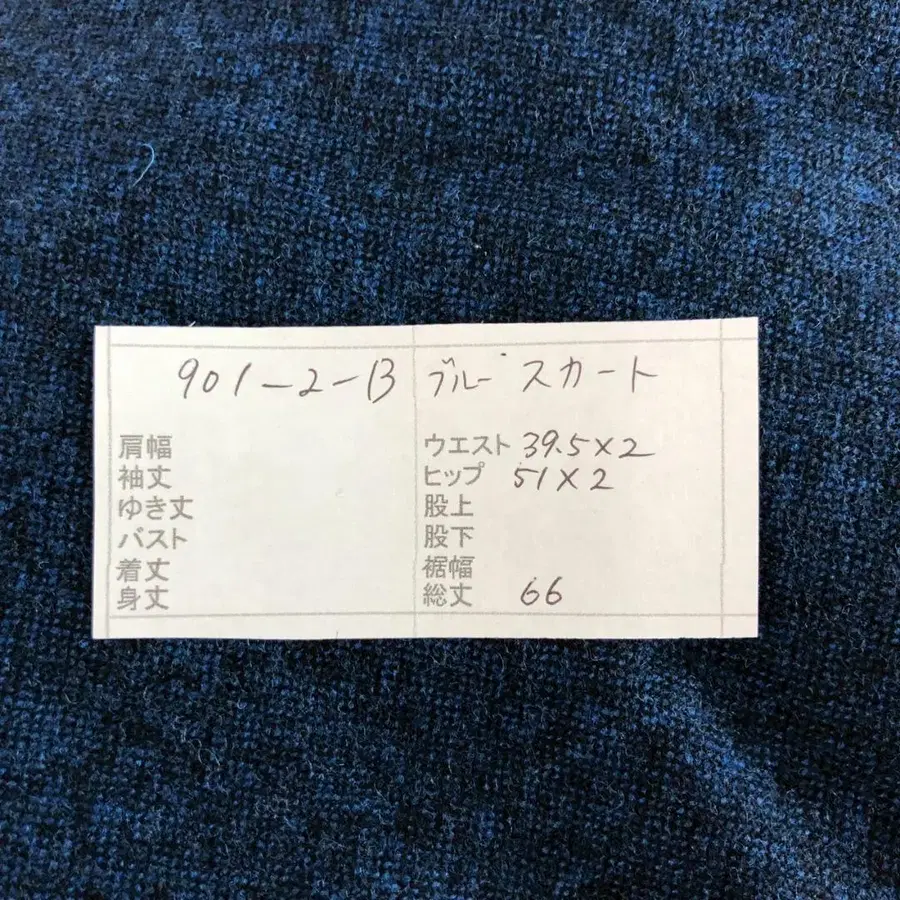 901-2-B ブルー スカート
肩幅
袖丈
ゆき丈
バスト
着丈
身丈
ウエスト 39.5×2
ヒップ 51×2
股上
股下
裾幅
総丈 66